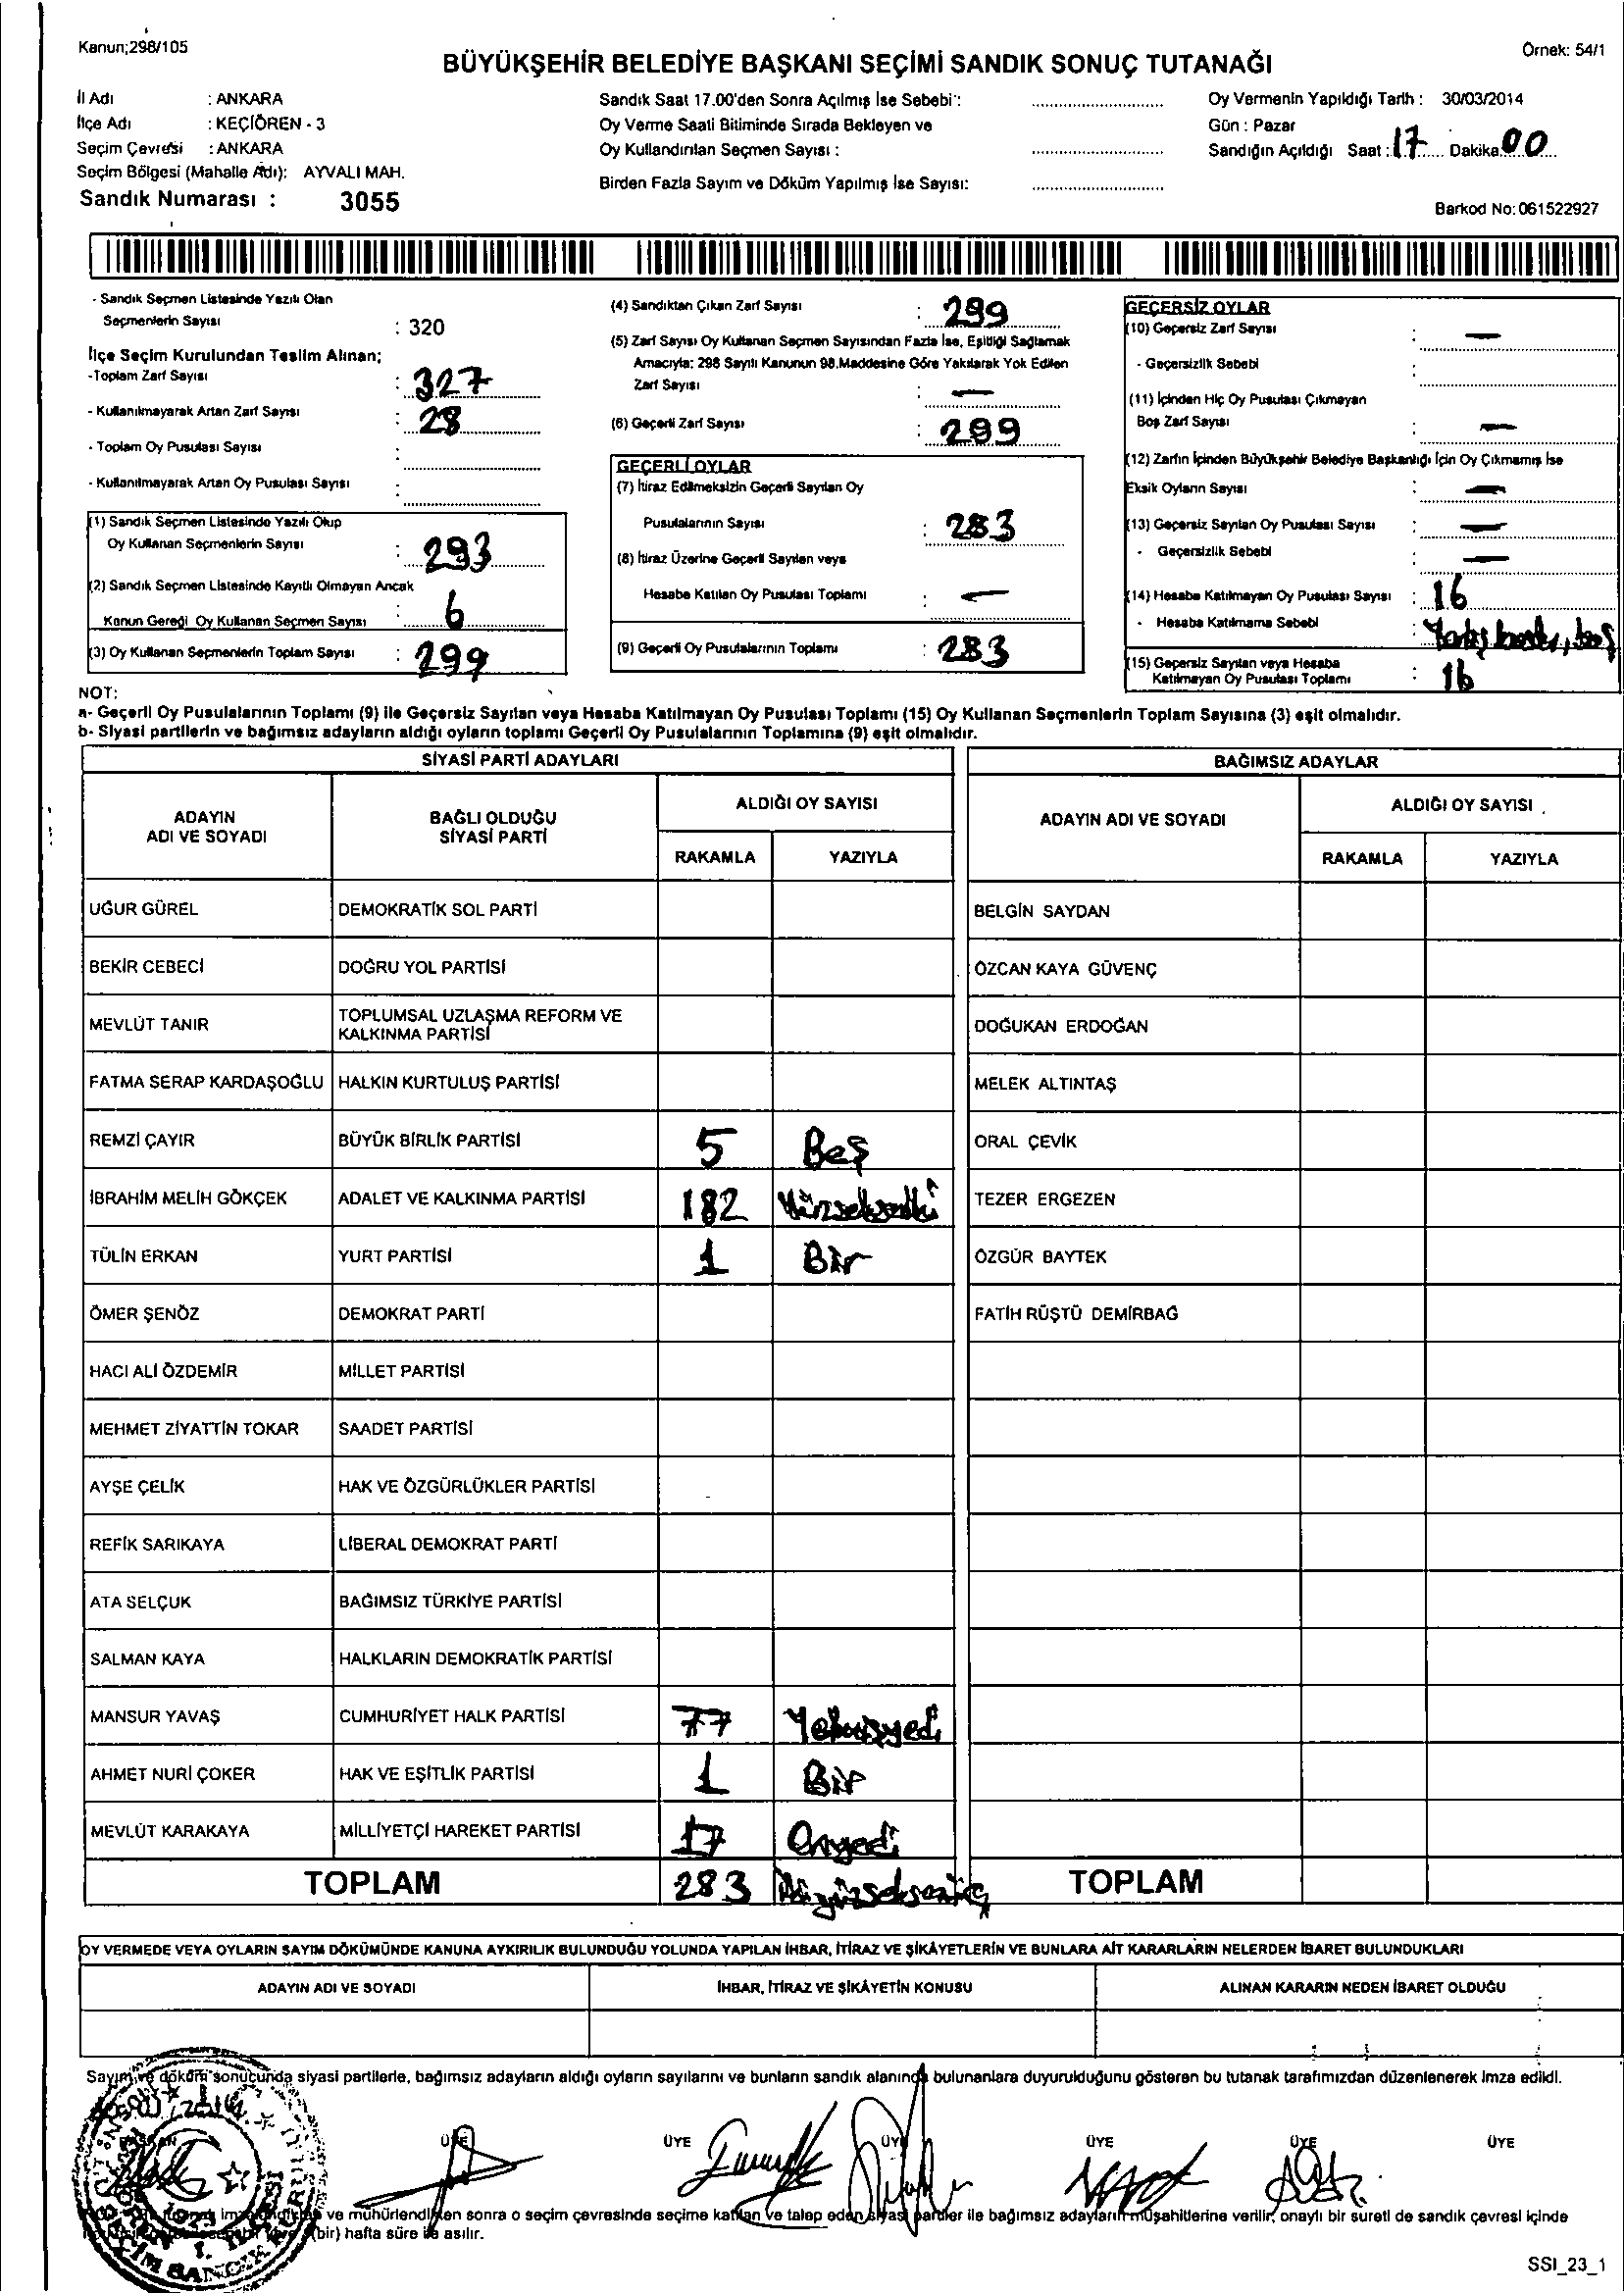 Kanun;298/105
Örnek: 54/1
BÜYÜKŞEHİR BELEDİYE BAŞKANI SEÇİMİ SANDIK SONUÇ TUTANAĞI
İl Adı : ANKARA
İlçe Adı : KEÇİÖREN - 3
Seçim Çevresi : ANKARA
Seçim Bölgesi (Mahalle Adı): AYVALI MAH.
Sandık Numarası : 3055
Sandık Saat 17.00'den Sonra Açılmış İse Sebebi :
Oy Verme Saati Bitiminde Sırada Bekleyen ve
Oy Kullandırılan Seçmen Sayısı :
Birden Fazla Sayım ve Döküm Yapılmış İse Sayısı:
Oy Vermenin Yapıldığı Tarih : 30/03/2014
Gün : Pazar
Sandığın Açıldığı Saat : 17 Dakika 00
Barkod No: 061522927
- Sandık Seçmen Listesinde Yazılı Olan
Seçmenlerin Sayısı : 320
İlçe Seçim Kurulundan Teslim Alınan;
-Toplam Zarf Sayısı : 327
- Kullanılmayarak Artan Zarf Sayısı : 28
- Toplam Oy Pusulası Sayısı :
- Kullanılmayarak Artan Oy Pusulası Sayısı :
(1) Sandık Seçmen Listesinde Yazılı Olup
Oy Kullanan Seçmenlerin Sayısı : 293
(2) Sandık Seçmen Listesinde Kayıtlı Olmayan Ancak
Kanun Gereği Oy Kullanan Seçmen Sayısı : 6
(3) Oy Kullanan Seçmenlerin Toplam Sayısı : 299
(4) Sandıktan Çıkan Zarf Sayısı : 299
(5) Zarf Sayısı Oy Kullanan Seçmen Sayısından Fazla İse, Eşitliği Sağlamak
Amacıyla: 298 Sayılı Kanunun 98.Maddesine Göre Yakılarak Yok Edilen
Zarf Sayısı : —
(6) Geçerli Zarf Sayısı : 299
GEÇERLİ OYLAR
(7) İtiraz Edilmeksizin Geçerli Sayılan Oy
Pusulalarının Sayısı : 283
(8) İtiraz Üzerine Geçerli Sayılan veya
Hesaba Katılan Oy Pusulası Toplamı : —
(9) Geçerli Oy Pusulalarının Toplamı : 283
GEÇERSİZ OYLAR
(10) Geçersiz Zarf Sayısı : —
- Geçersizlik Sebebi :
(11) İçinden Hiç Oy Pusulası Çıkmayan
Boş Zarf Sayısı : —
(12) Zarfın İçinden Büyükşehir Belediye Başkanlığı İçin Oy Çıkmamış İse
Eksik Oyların Sayısı : —
(13) Geçersiz Sayılan Oy Pusulası Sayısı : —
- Geçersizlik Sebebi : —
(14) Hesaba Katılmayan Oy Pusulası Sayısı : 16
- Hesaba Katılmama Sebebi : boş
(15) Geçersiz Sayılan veya Hesaba
Katılmayan Oy Pusulası Toplamı : 16
NOT:
a- Geçerli Oy Pusulalarının Toplamı (9) ile Geçersiz Sayılan veya Hesaba Katılmayan Oy Pusulası Toplamı (15) Oy Kullanan Seçmenlerin Toplam Sayısına (3) eşit olmalıdır.
b- Siyasi partilerin ve bağımsız adayların aldığı oyların toplamı Geçerli Oy Pusulalarının Toplamına (9) eşit olmalıdır.
SİYASİ PARTİ ADAYLARI
ADAYIN
ADI VE SOYADI
BAĞLI OLDUĞU
SİYASİ PARTİ
ALDIĞI OY SAYISI
RAKAMLA YAZIYLA
UĞUR GÜREL DEMOKRATİK SOL PARTİ
BEKİR CEBECİ DOĞRU YOL PARTİSİ
MEVLÜT TANIR TOPLUMSAL UZLAŞMA REFORM VE
KALKINMA PARTİSİ
FATMA SERAP KARDAŞOĞLU HALKIN KURTULUŞ PARTİSİ
REMZİ ÇAYIR BÜYÜK BİRLİK PARTİSİ 5 Beş
İBRAHİM MELİH GÖKÇEK ADALET VE KALKINMA PARTİSİ 182 Yüzseksenİki
TÜLİN ERKAN YURT PARTİSİ 1 Bir
ÖMER ŞENÖZ DEMOKRAT PARTİ
HACI ALİ ÖZDEMİR MİLLET PARTİSİ
MEHMET ZİYATTİN TOKAR SAADET PARTİSİ
AYŞE ÇELİK HAK VE ÖZGÜRLÜKLER PARTİSİ
REFİK SARIKAYA LİBERAL DEMOKRAT PARTİ
ATA SELÇUK BAĞIMSIZ TÜRKİYE PARTİSİ
SALMAN KAYA HALKLARIN DEMOKRATİK PARTİSİ
MANSUR YAVAŞ CUMHURİYET HALK PARTİSİ 77 Yetmişyedi
AHMET NURİ ÇOKER HAK VE EŞİTLİK PARTİSİ 1 Bir
MEVLÜT KARAKAYA MİLLİYETÇİ HAREKET PARTİSİ 17 Onyedi
TOPLAM 283 İkiyüzseksenüç
BAĞIMSIZ ADAYLAR
ADAYIN ADI VE SOYADI
ALDIĞI OY SAYISI
RAKAMLA YAZIYLA
BELGİN SAYDAN
ÖZCAN KAYA GÜVENÇ
DOĞUKAN ERDOĞAN
MELEK ALTINTAŞ
ORAL ÇEVİK
TEZER ERGEZEN
ÖZGÜR BAYTEK
FATİH RÜŞTÜ DEMİRBAĞ
TOPLAM
OY VERMEDE VEYA OYLARIN SAYIM DÖKÜMÜNDE KANUNA AYKIRILIK BULUNDUĞU YOLUNDA YAPILAN İHBAR, İTİRAZ VE ŞİKÂYETLERİN VE BUNLARA AİT KARARLARIN NELERDEN İBARET BULUNDUKLARI
ADAYIN ADI VE SOYADI İHBAR, İTİRAZ VE ŞİKÂYETİN KONUSU ALINAN KARARIN NEDEN İBARET OLDUĞU
Sayım ve döküm sonucunda siyasi partilerle, bağımsız adayların aldığı oyların sayılarını ve bunların sandık alanında bulunanlara duyurulduğunu gösteren bu tutanak tarafımızdan düzenlenerek imza edildi.
ÜYE ÜYE ÜYE ÜYE ÜYE ÜYE
ve mühürlendikten sonra o seçim çevresinde seçime katılan ve talep eden siyasi partiler ile bağımsız adayların müşahitlerine verilir, onaylı bir sureti de sandık çevresi içinde
(bir) hafta süre ile asılır.
SSI_23_1